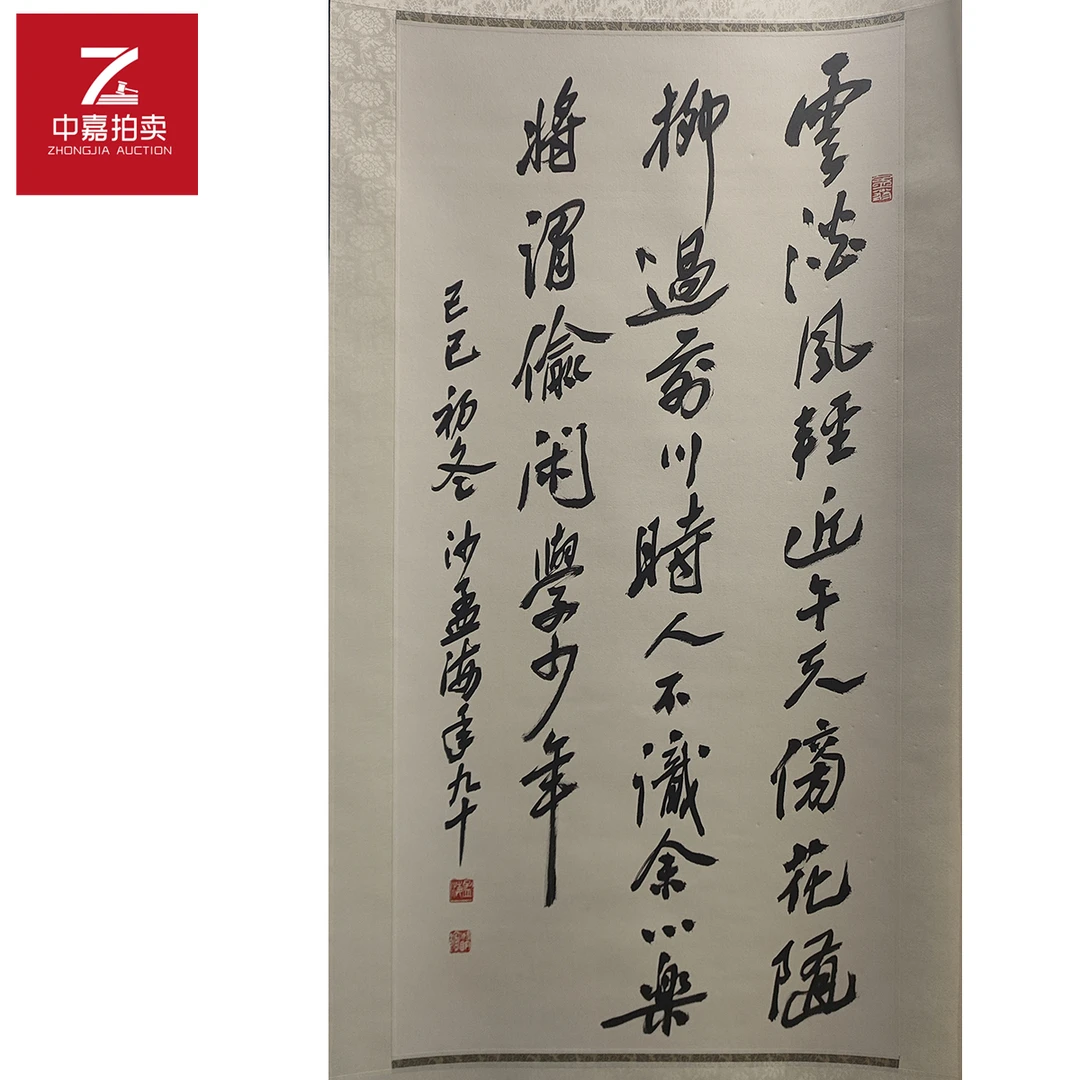 中嘉拍卖
ZHONGJIA AUCTION
雲淡風輕近午天傍花隨
柳過前川時人不識余心樂
將謂偷閑學少年
己巳初冬沙孟海年九十